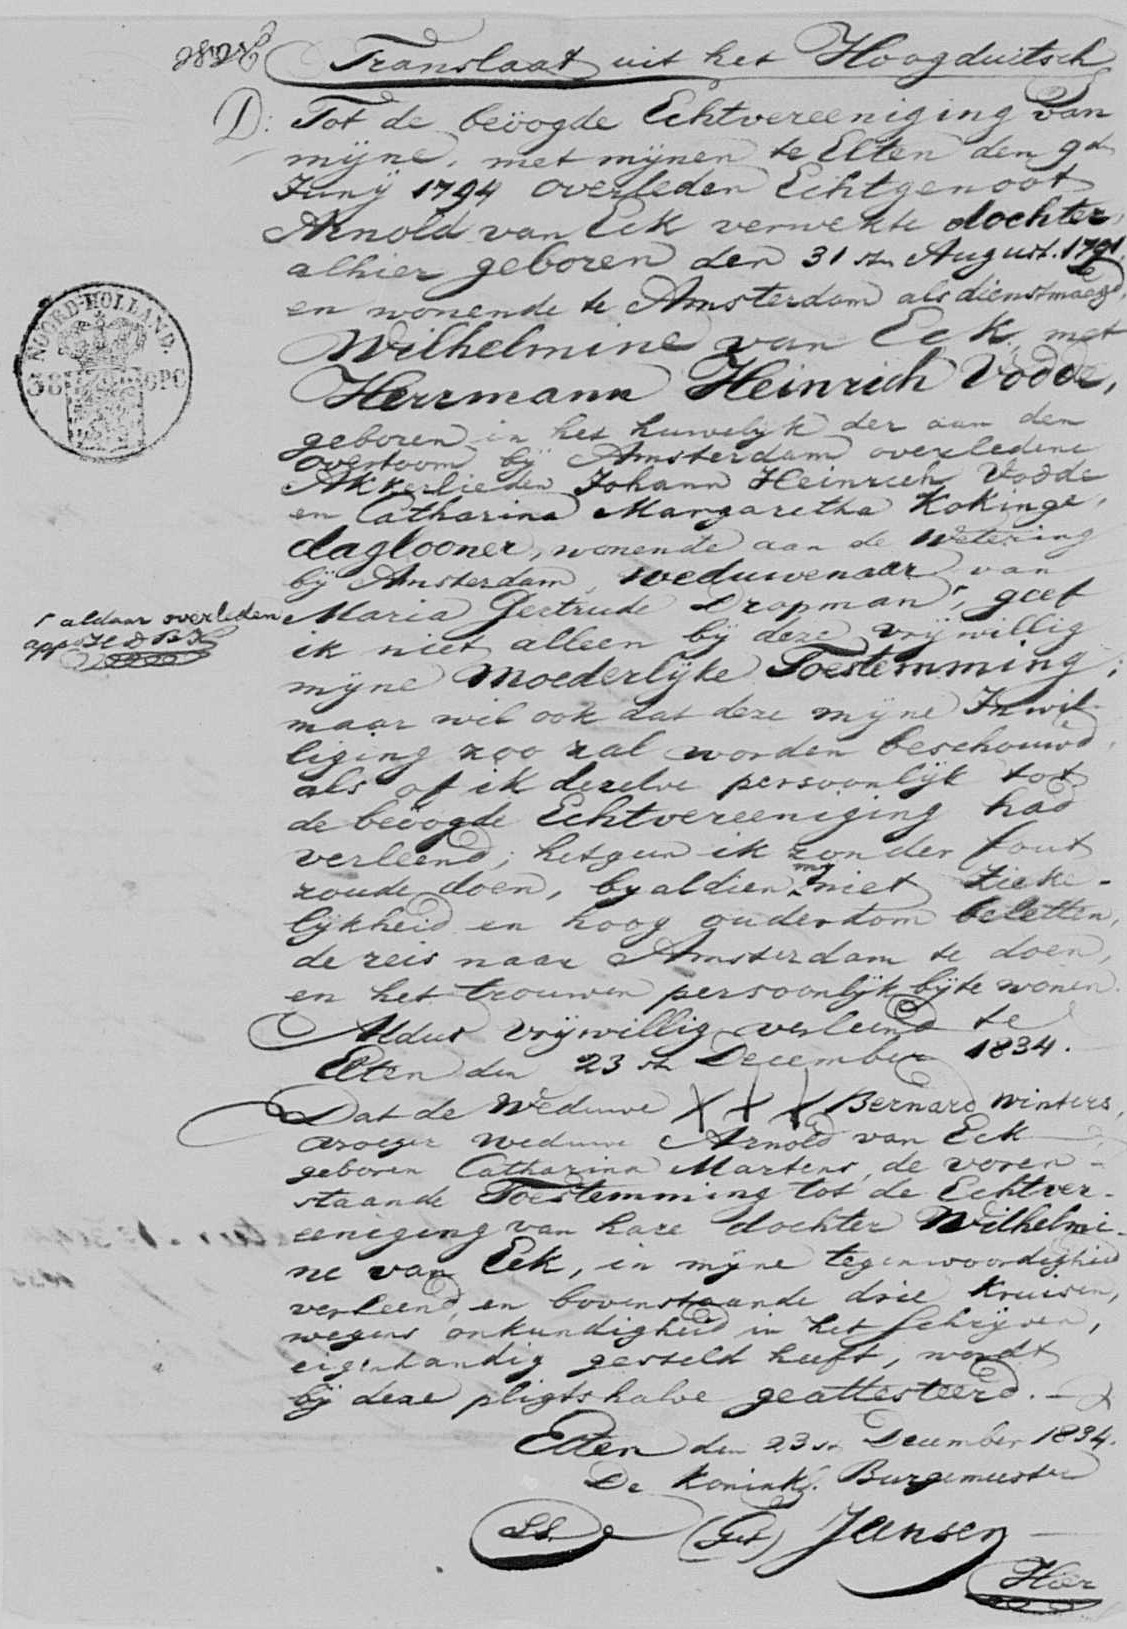 Translaat uit het Hoogduitsch
D: Tot de beöogde Echtvereeniging van
mijne, met mijnen te Elten den 9de
Junij 1794 overleden Echtgenoot
Arnold van Eck verwekte dochter,
alhier geboren den 31 sten August. 1791,
en wonende te Amsterdam als dienstmaagd,
Wilhelmine van Eck, met
Herrmann Heinrich Vodde,
geboren in het huwelijk der aan den
overtoom bij Amsterdam overledene
Akkerlieden Johann Heinrich Vodde
en Catharina Margaretha Kokinge,
daglooner, wonende aan de Wetering
bij Amsterdam, weduwenaar van
Maria Gertrude Drapman ┌, geef
┌ aldaar overleden
ik niet alleen bij deze vrijwillig
mijne Moederlijke Toestemming;
maar wil ook dat deze mijne Inwil-
liging zoo zal worden beschouwd,
als of ik dezelve persoonlijk tot
de beöogde Echtvereeniging had
verleend; hetgeen ik zonder fout
zoude doen, byaldien my niet Zieke-
lijkheid en hoog ouderdom beletten,
de reis naar Amsterdam te doen,
en het trouwen persoonlijk bijte wonen.
Aldus vrijwillig verleend te
Elten den 23 sten December 1834.
Dat de Weduwe X X X Bernard Winters,
vroeger weduwe Arnold van Eck
geboren Catharina Martens, de voren-
staande Toestemming tot de Echtver-
eeniging van hare dochter Wilhelmi-
ne van Eck, in mijne tegenwoordigheid
verleend, en bovenstaande drie Kruisen,
wegens onkundigheid in het Schrijven,
eigenhandig gesteld heeft, wordt
bij deze pligtshalve geattesteerd.
Elten den 23 sten December 1834.
De Koninkl. Burgemeester
LS. (Get) Jansen
Hier
NOORD-HOLLAND.
38 OPC